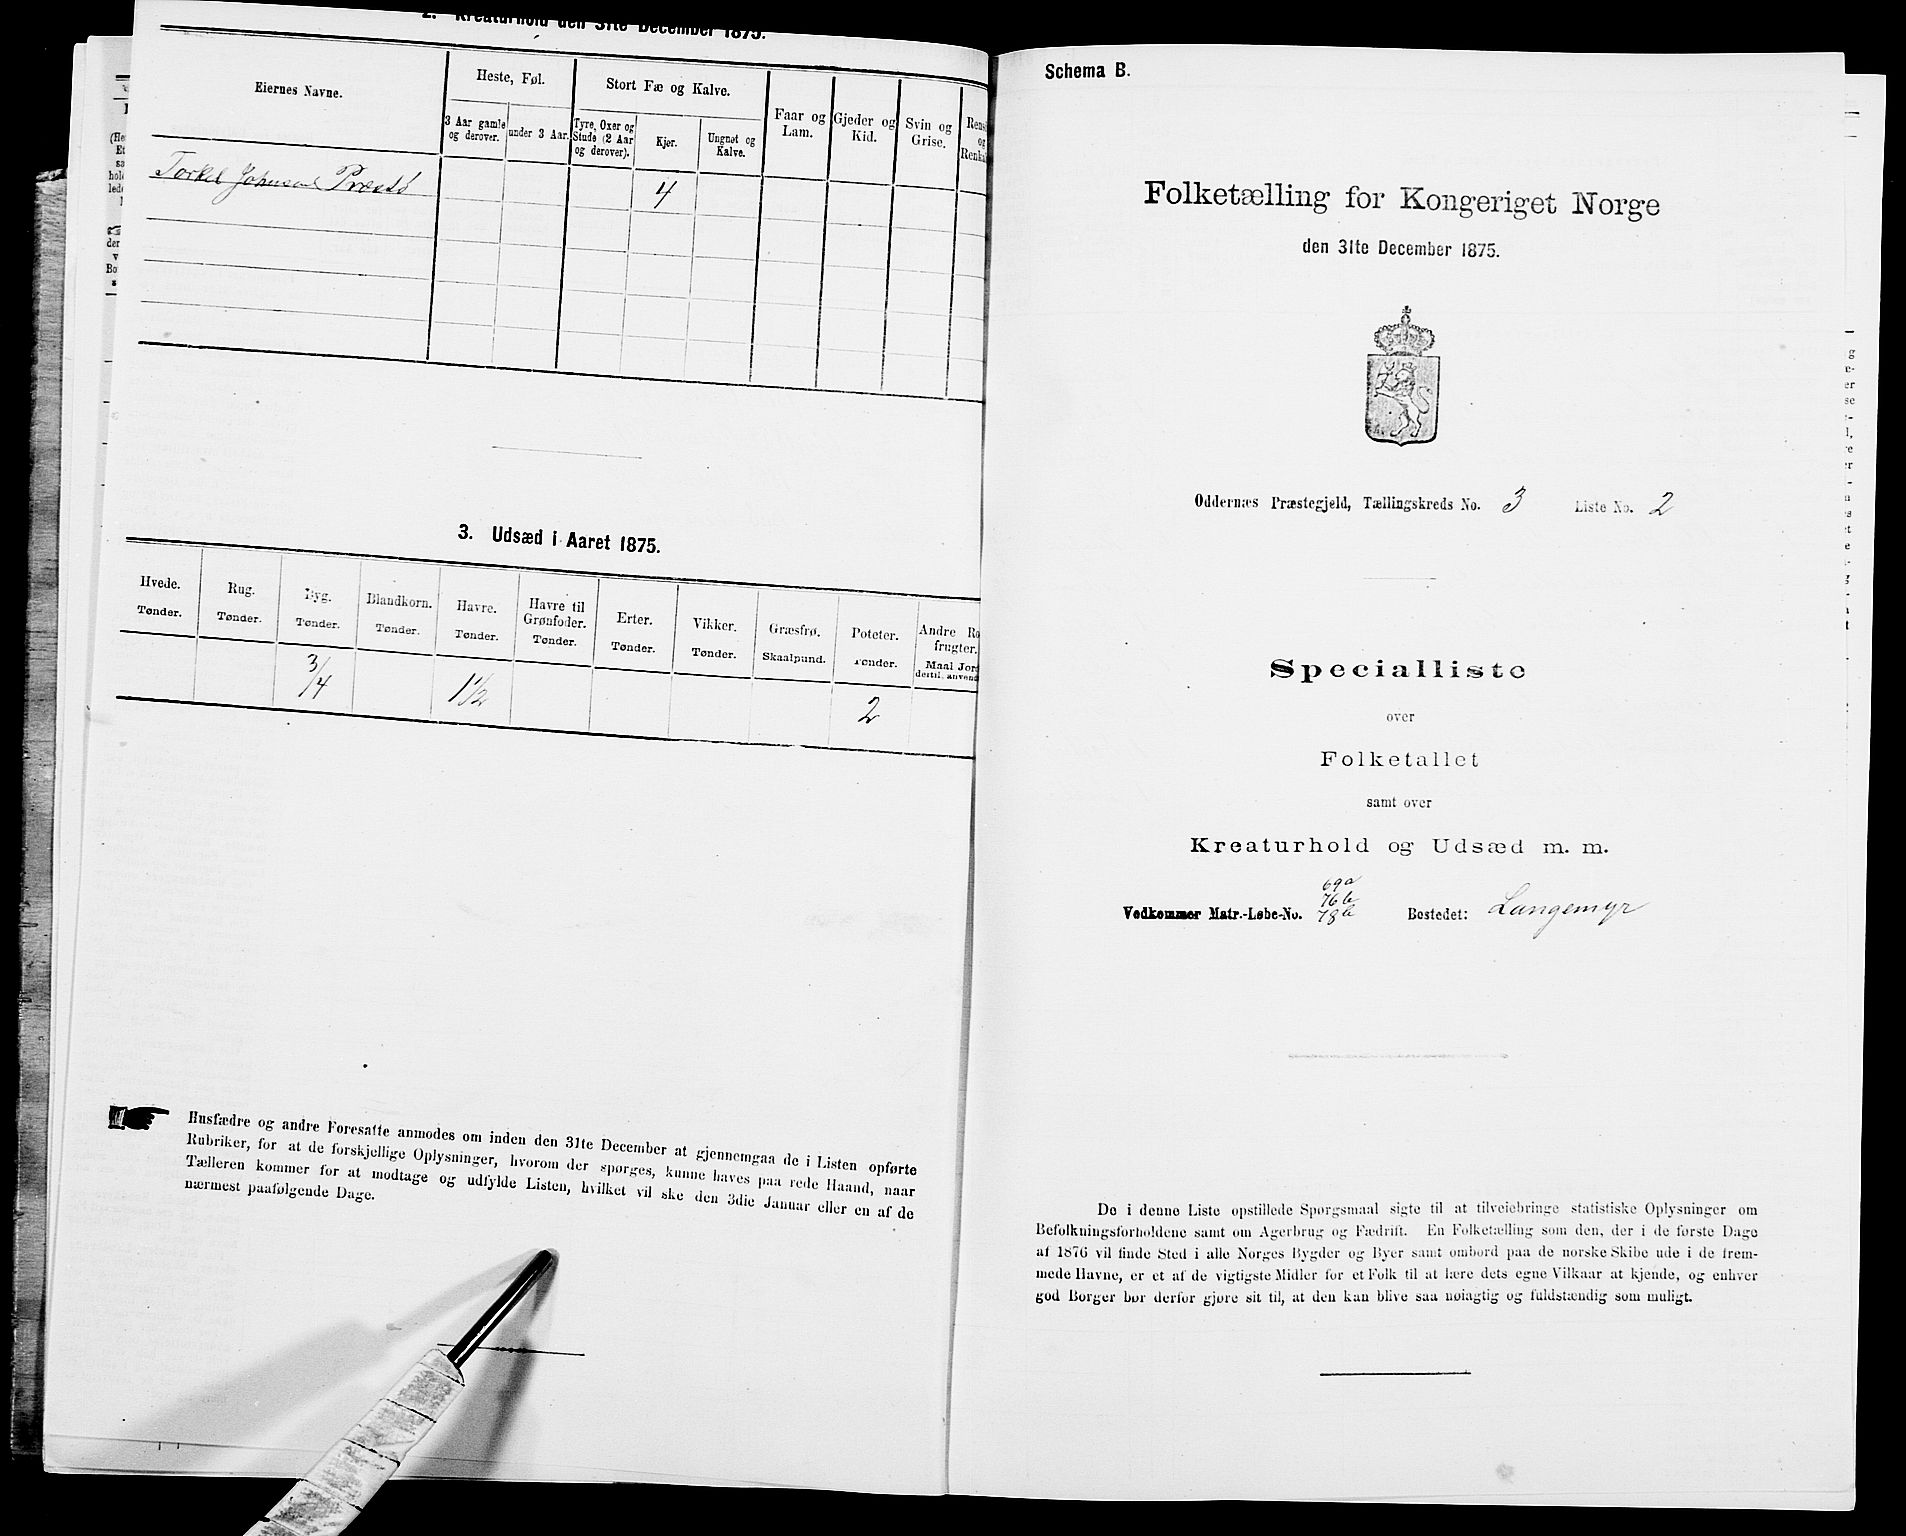 2. Kreaturhold den 31te December 1875.
Eiernes Navne.
Heste, Føl.
Stort Fæ og Kalve.
3 Aar gamle og derover.
under 3 Aar.
Tyre, Oxer og Stude (2 Aar og derover).
Kjør.
Ungnøt og Kalve.
Faar og Lam.
Gjeder og Kid.
Svin og Grise.
Torkel Johnsen Præstø 4
3. Udsæd i Aaret 1875.
Hvede. Rug. Byg. Blandkorn. Havre. Havre til Grønfoder. Erter. Vikker. Græsfrø. Poteter. Andre Ro
frugter.
Tønder. Tønder. Tønder. Tønder. Tønder. Tønder. Tønder. Tønder. Skaalpund. Tønder. Maal Jord
dertil anvend
3/4 1 1/2 2
Husfædre og andre Foresatte anmodes om inden den 31te December at gjennemgaa de i Listen opførte
Rubriker, for at de forskjellige Oplysninger, hvorom der spørges, kunne haves paa rede Haand, naar
Tælleren kommer for at modtage og udfylde Listen, hvilket vil ske den 3die Januar eller en af de
nærmest paafølgende Dage.
Schema B.
Folketælling for Kongeriget Norge
den 31te December 1875.
Oddernæs Præstegjeld, Tællingskreds No. 3 Liste No. 2
Specialliste
over
Folketallet
samt over
Kreaturhold og Udsæd m. m.
69a
76b
Vedkommer Matr.-Løbe-No. 78b Bostedet: Langemyr
De i denne Liste opstillede Spørgsmaal sigte til at tilveiebringe statistiske Oplysninger om
Befolkningsforholdene samt om Agerbrug og Fædrift. En Folketælling som den, der i de første Dage
af 1876 vil finde Sted i alle Norges Bygder og Byer samt ombord paa de norske Skibe ude i de frem-
mede Havne, er et af de vigtigste Midler for et Folk til at lære dets egne Vilkaar at kjende, og enhver
god Borger bør derfor gjøre sit til, at den kan blive saa nøiagtig og fuldstændig som muligt.